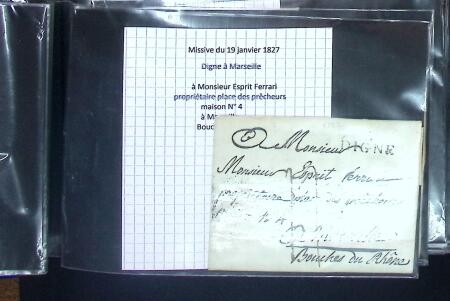 Missive du 19 janvier 1827
Digne à Marseille
à Monsieur Esprit Ferrari
propriétaire place des prêcheurs
maison N° 4
à M
Bouc
A Monsieur
DIGNE
Monsieur Esprit Ferrari
Bouches du Rhône